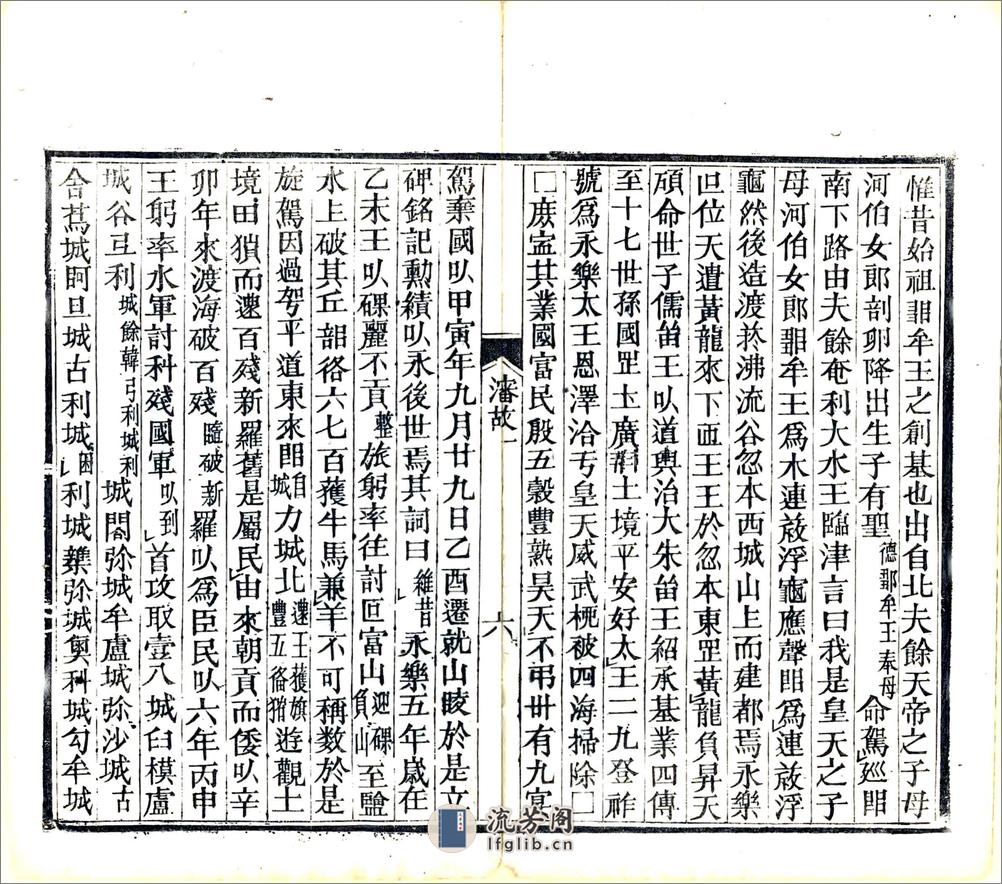 惟昔始祖鄒牟王之創基也出自北夫餘天帝之子母
河伯女郎剖卵降出生子有聖德鄒牟王奉母命駕巡䀚
南下路由夫餘奄利大水王臨津言曰我是皇天之子
母河伯女郎鄒牟王爲木連敍浮龜應聲䀚爲連敍浮
龜然後造渡於沸流谷忽本西城山上而建都焉永樂
世位天遣黃龍來下迊王王於忽本東罡黃龍負昇天
顧命世子儒留王以道輿治大朱留王紹承基業四傳
至十七世孫國罡上廣開土境平安好太王二九登祚
號爲永樂太王恩澤洽于皇天威武㮇被四海掃除□
□庶寍其業國富民殷五穀豐熟昊天不弔卅有九宴
瀋故一
六
駕棄國以甲寅年九月廿九日乙酉遷就山陵於是立
碑銘記勳績以永後世焉其詞曰維昔永樂五年歲在
乙未王以碑麗不貢整旅躬率往討叵富山負山至鹽
水上破其丘部洛六七百獲牛馬兼羊不可稱數於是
旋駕因過䮗平道東來䀚自城力城北遝王獲旗豐五俻猶遊觀土
境田獵而還百殘新羅舊是屬民由來朝貢而倭以辛
卯年來渡海破百殘隨破新羅以爲臣民以六年丙申
王躬率水軍討科殘國軍以到首攻取壹八城臼模盧
城谷弖利城餘韓弓利城利城閣弥城牟盧城弥沙城古
舍蔦城阿旦城古利城困利城襍弥城奧利城勾牟城
流芳阁
lfglib.cn